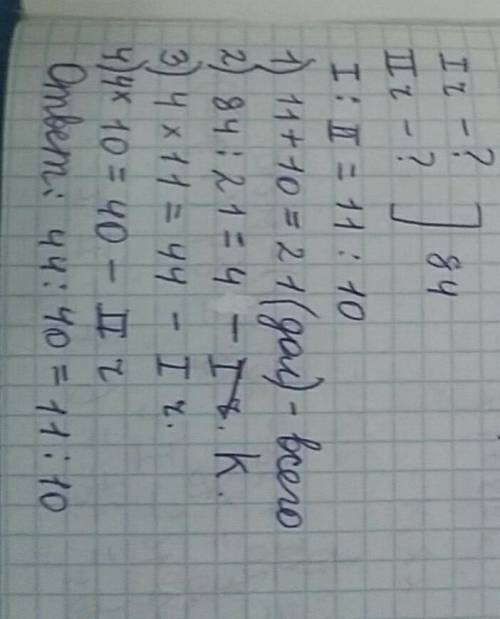 I г - ?
II г - ? ] 84
I : II = 11 : 10
1) 11 + 10 = 21 (дол) - всего
2) 84 : 21 = 4 - I г. к.
3) 4 × 11 = 44 - I г.
4) 4 × 10 = 40 - II г
Ответ: 44 : 40 = 11 : 10